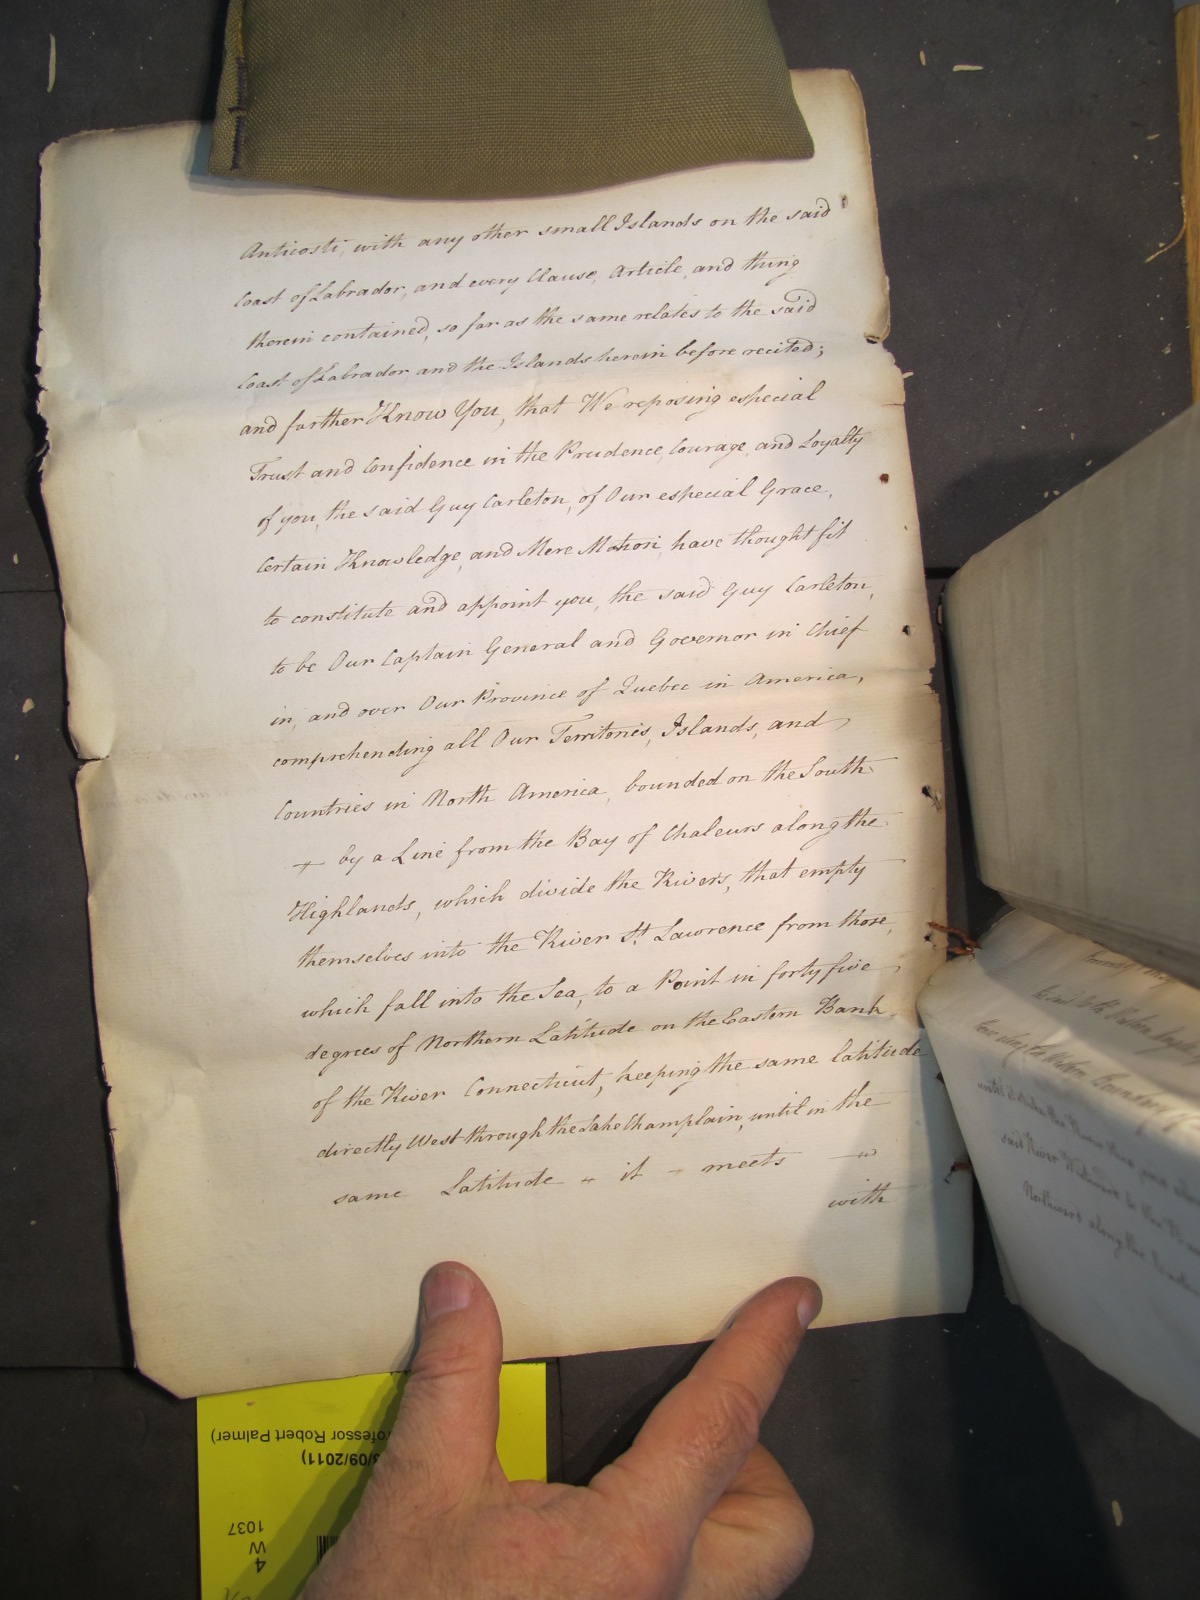 Anticosti, with any other small Islands on the said
Coast of Labrador, and every Clause, Article, and thing
therein contained, so far as the same relates to the said
Coast of Labrador and the Islands herein before recited;
and further Know You, that We reposing especial
Trust and Confidence in the Prudence, Courage, and Loyalty
of you, the said Guy Carleton, of Our especial Grace,
Certain Knowledge, and Mere Motion, have thought fit
to constitute and appoint you, the said Guy Carleton,
to be Our Captain General and Governor in Chief
in, and over Our Province of Quebec in America,
comprehending all Our Territories, Islands, and
Countries in North America, bounded on the South
+ by a Line from the Bay of Chaleurs along the
Highlands, which divide the Rivers, that empty
themselves into the River St. Lawrence from those,
which fall into the Sea, to a Point in forty five
degrees of Northern Latitude on the Eastern Bank
of the River Connecticut, keeping the same latitude
directly West through the Lake Champlain, until in the
same Latitude it meets
with
Professor Robert Palmer)
/09/2011)
1037
W
4
said River
Northward along the